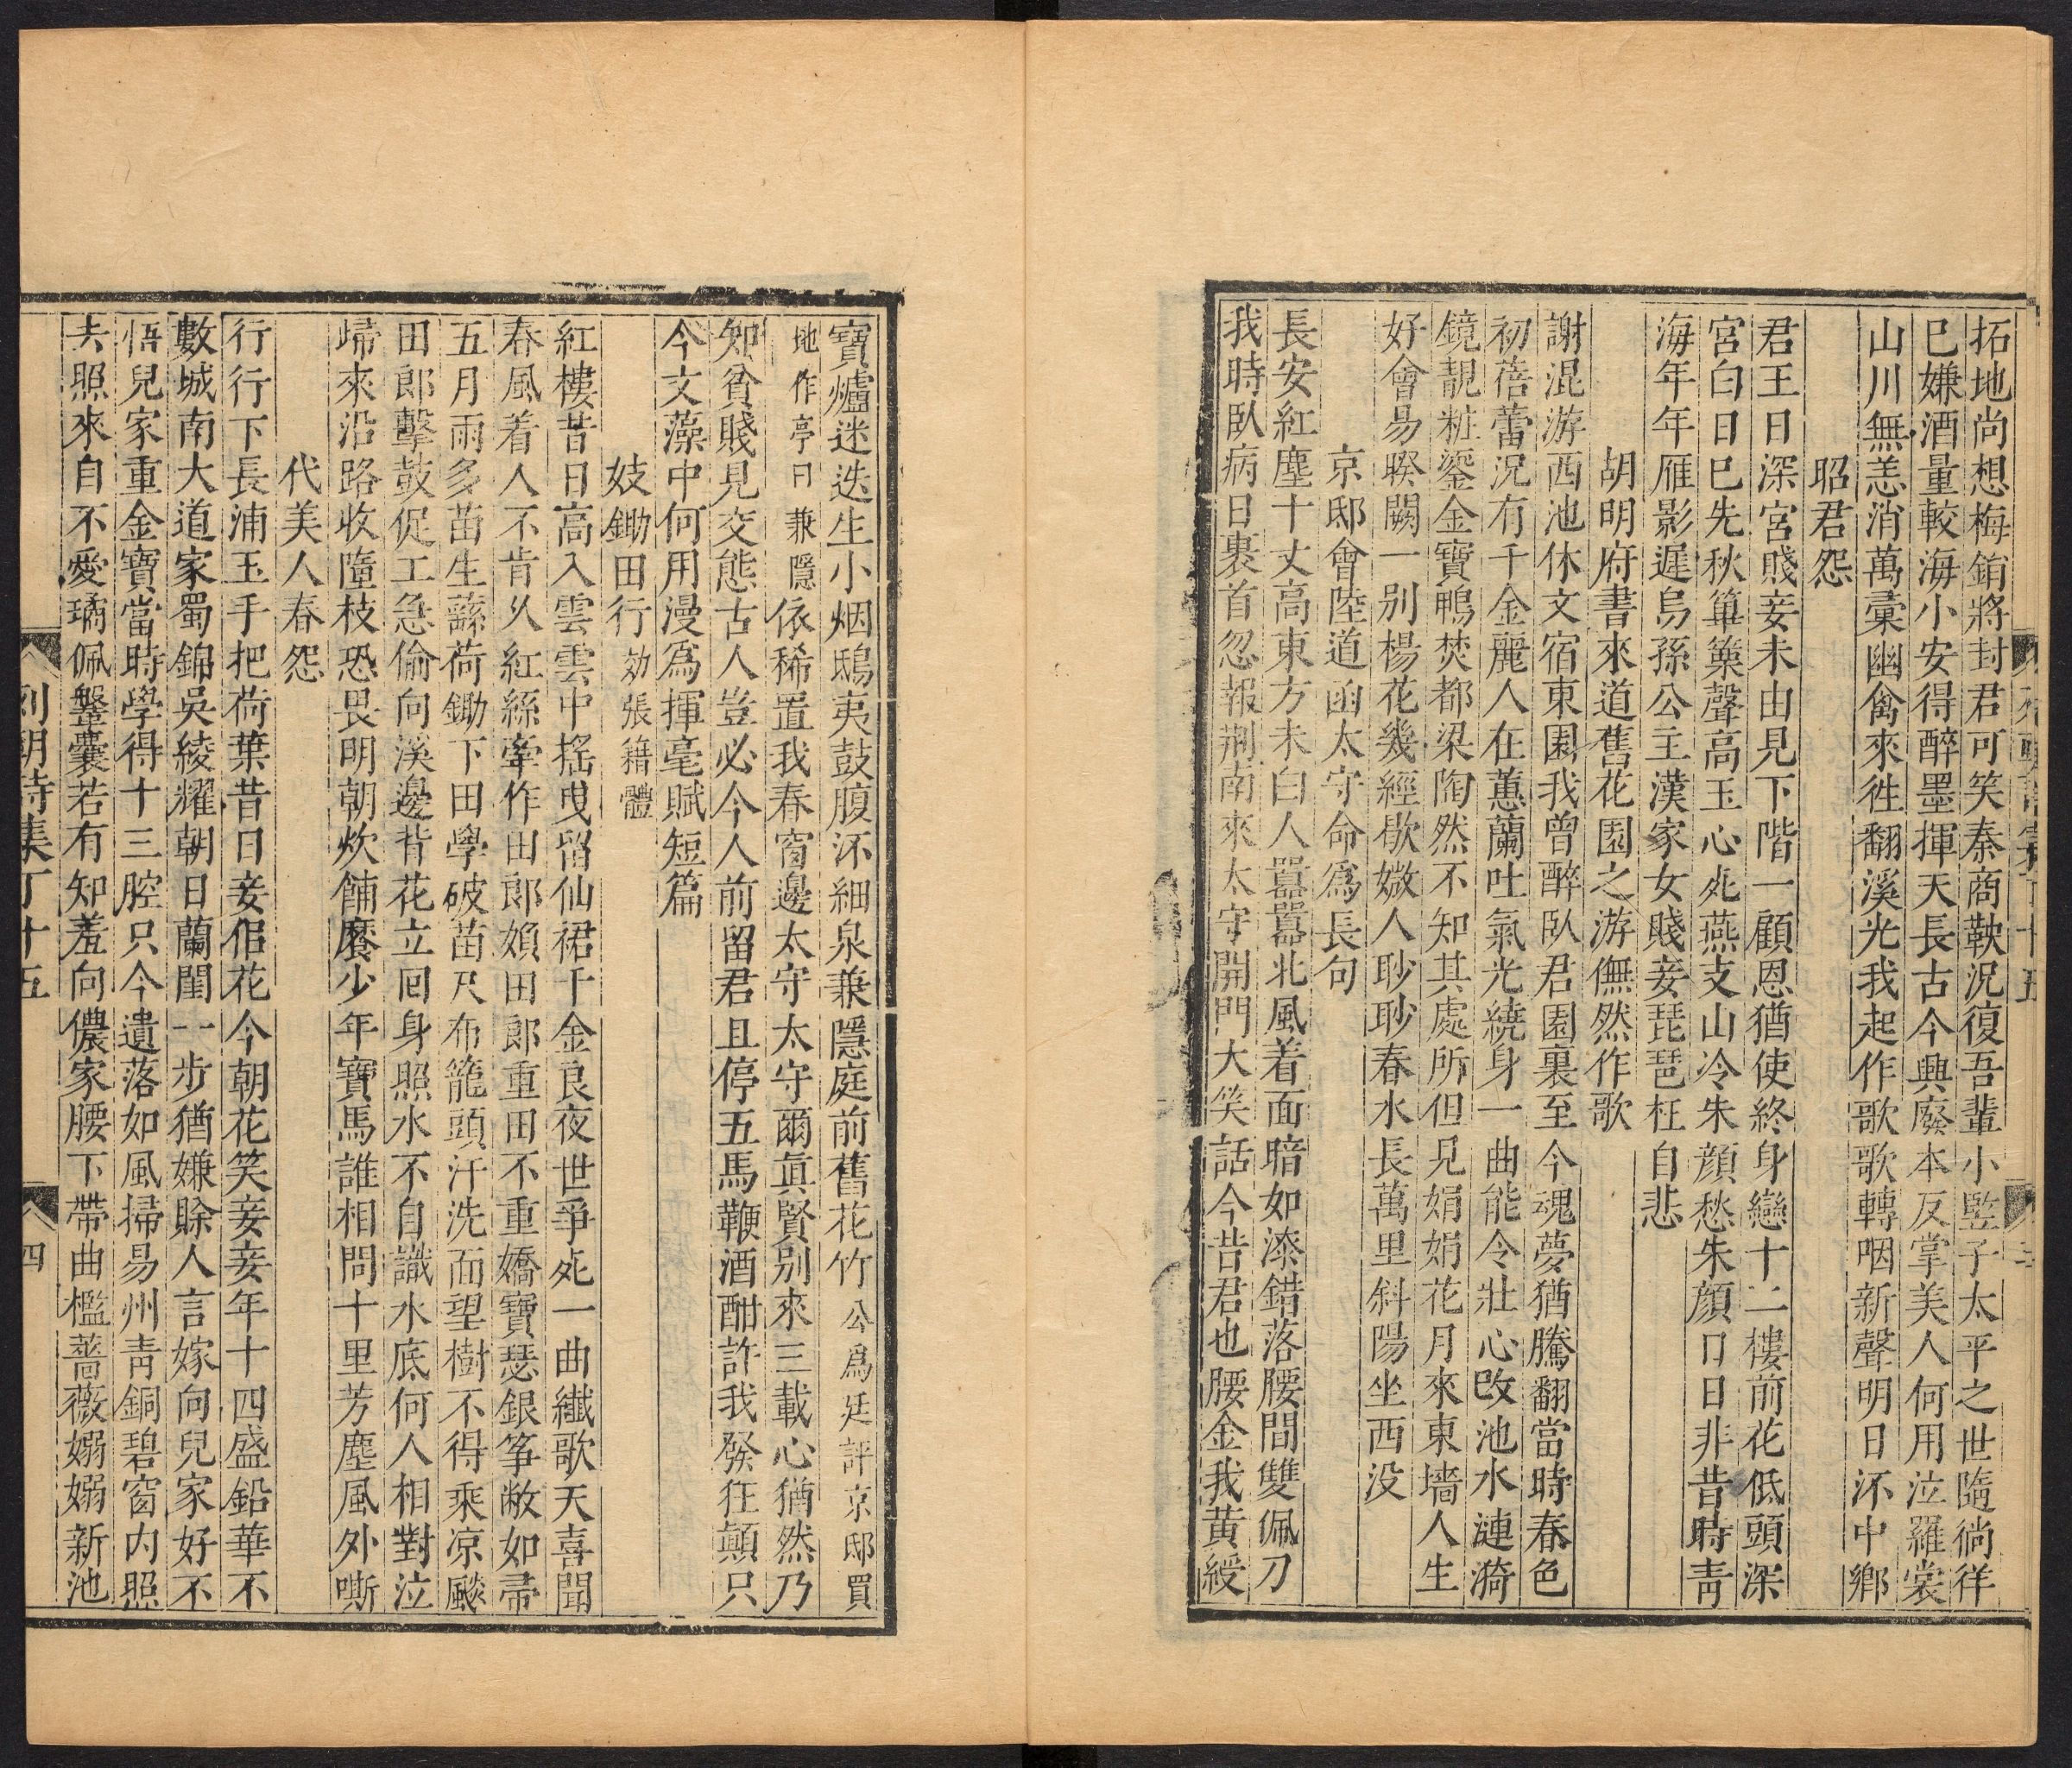 拓地尚想梅鋗將封君可笑秦商鞅況復吾輩小豎子太平之世隨徜徉
已嫌酒量較海小安得醉墨揮天長古今興廢本反掌美人何用泣羅裳
山川無恙消萬彙幽禽來徃翻溪光我起作歌歌轉咽新聲明日沠中鄉
昭君怨
君王日深宮賤妾未由見下階一顧恩猶使終身戀十二樓前花低頭深
宮白日巳先秋篳篥聲高玉心死燕支山冷朱顔愁朱顔日日非昔時青
海年年雁影遲烏孫公主漢家女賤妾琵琶枉自悲
胡明府書來道舊花園之游憮然作歌
謝混游西池休文宿東園我曾醉臥君園裏至今魂夢猶騰翻當時春色
初蓓蕾況有千金麗人在蕙蘭吐氣光繞身一曲能令壯心改池水漣漪
鏡靚粧鎏金寶鴨焚都梁陶然不知其處所但見娟娟花月來東墻人生
好會易暌闕一別楊花幾經歇媺人眇眇春水長萬里斜陽坐西没
京邸會陸道函太守命爲長句
長安紅塵十丈高東方未白人囂囂北風着面暗如漆錯落腰間雙佩刀
我時臥病日裹首忽報荆南來太守開門大笑話今昔君也腰金我黄綬
寶爐迷迭生小烟鴟夷鼓腹沠細泉兼隱庭前舊花竹公爲廷評京邸買
地作亭曰兼隱依稀置我春窗邊太守太守爾眞賢別來三載心猶然乃
知貧賤見交態古人豈必今人前留君且停五馬鞭酒酣許我發狂顛只
今文藻中何用漫爲揮毫賦短篇
妓鋤田行効張籍體
紅樓昔日高入雲雲中搖曳留仙裙千金良夜世爭死一曲纖歌天喜聞
春風着人不肯久紅絲牽作田郎婦田郎重田不重嬌寶瑟銀筝敝如帚
五月雨多苗生蘇荷鋤下田學破苗尺布籠頭汗洗面望樹不得乘凉飈
田郎擊鼓促工急偷向溪邊背花立回身照水不自識水底何人相對泣
歸來沿路收墮枝恐畏明朝炊餔糜少年寶馬誰相問十里芳塵風外嘶
代美人春怨
行行下長浦玉手把荷葉昔日妾佀花今朝花笑妾妾年十四盛鉛華不
數城南大道家蜀錦吳綾耀朝日蘭閨一步猶嫌賒人言嫁向兒家好不
悟兒家重金寶當時學得十三腔只今遺落如風掃易州靑銅碧窗内照
去照來自不愛璚佩鞶囊若有知羞向儂家腰下帶曲檻薔薇嫋嫋新池
列朝詩集丁十五
四